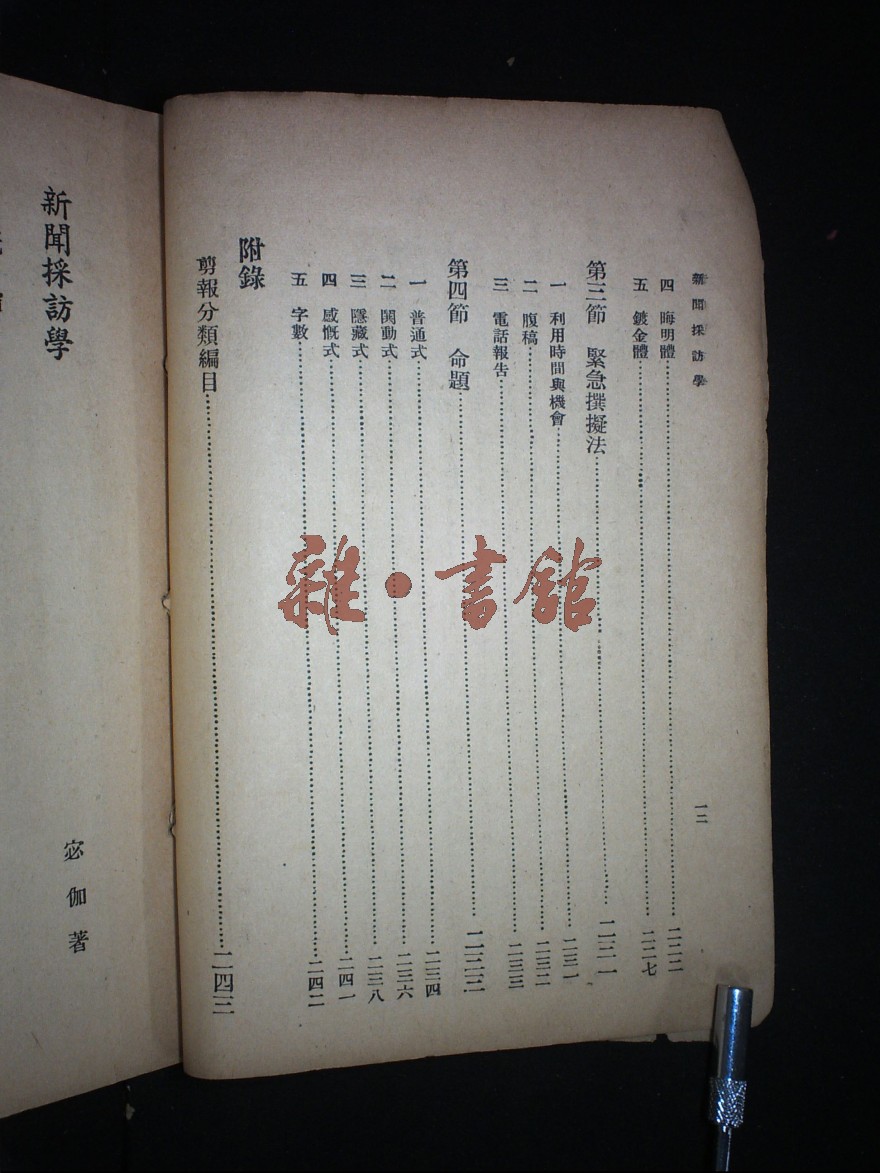 新聞採訪學
一二
四 晦明體 二二二
五 鍍金體 二二七
第三節 緊急撰擬法 二三一
一 利用時間與機會 二三一
二 腹稿 二三二
三 電話報告 二三三
第四節 命題 二三三
一 普通式 二三四
二 関動式 二三六
三 隱藏式 二三八
四 感慨式 二四一
五 字數 二四二
附錄
剪報分類編目 二四三
新聞採訪學
宓伽著
雜·書館